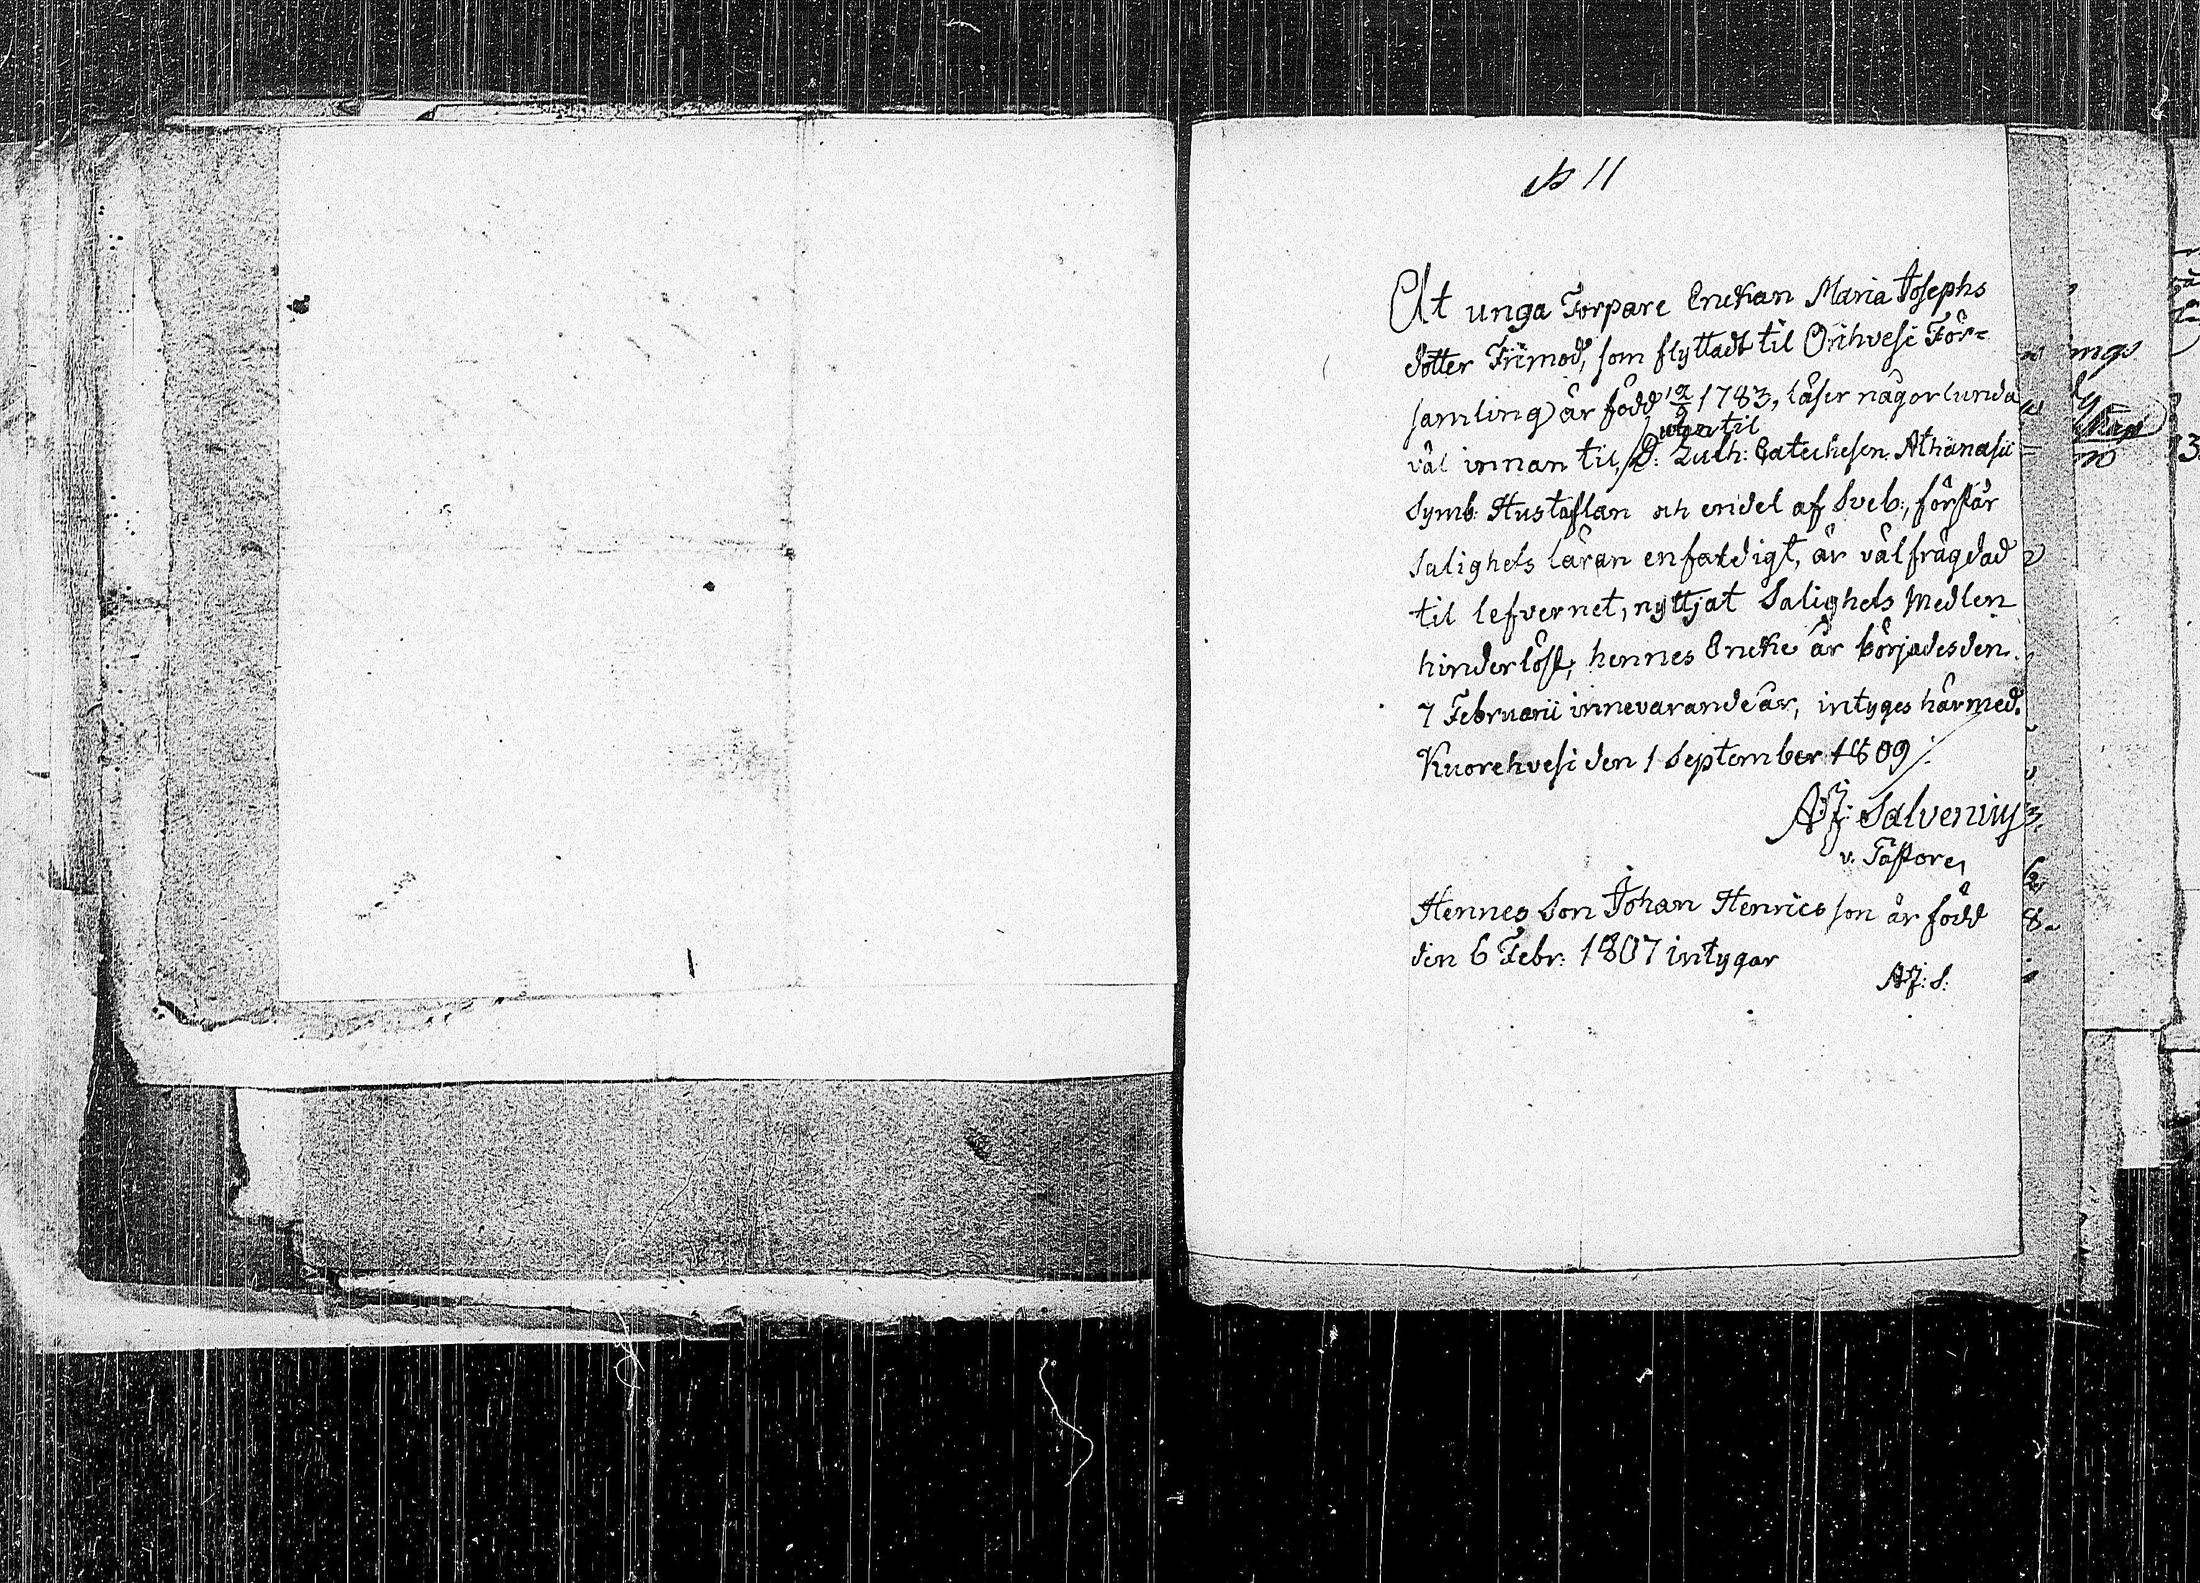 № 11
At unga Torpare Enckan Maria Josephs
dotter Friimod, som flyttadt til Orihvesi För-
samling är född 12/2 1783, läser någorlunda
utan til
väl innan til, D: Luth: Catechesen Athanasii
Symb: Hustaflan och endel af Sveb:, förstår
Salighets läran enfaldigt, är välfrägdad
til lefvernet, nyttjat Salighets Medlen
hinderlöst, hennes Encke år börjades den
7 Februarii innevarande år, intyges härmed.
Kuorehvesi den 1 September 1809
A:J: Salvenius
v. Pastor
Hennes Son Johan Henricsson är född
den 6 Febr: 1807 intygar
A:J: S: